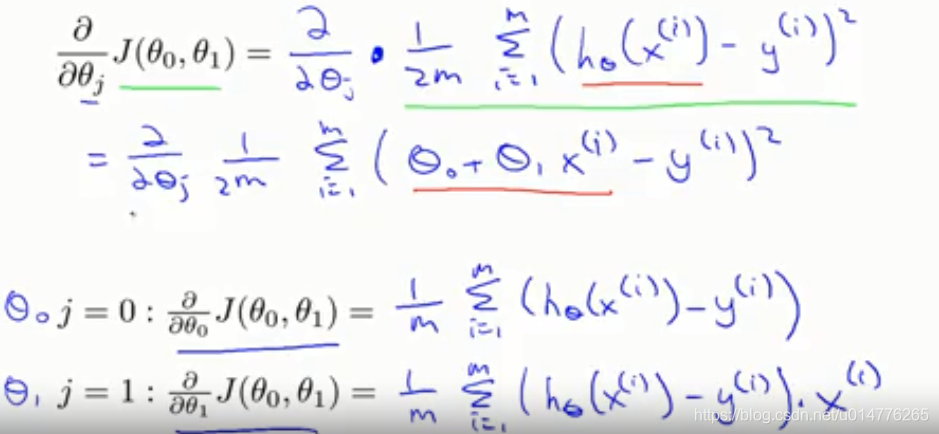 ∂/∂θⱼ J(θ₀, θ₁) = ∂/∂θⱼ · 1/2m ∑ᵢ₌₁ᵐ (h_θ(x⁽ⁱ⁾) − y⁽ⁱ⁾)²
= ∂/∂θⱼ 1/2m ∑ᵢ₌₁ᵐ (θ₀ + θ₁ x⁽ⁱ⁾ − y⁽ⁱ⁾)²
θ₀ j = 0 : ∂/∂θ₀ J(θ₀, θ₁) = 1/m ∑ᵢ₌₁ᵐ (h_θ(x⁽ⁱ⁾) − y⁽ⁱ⁾)
θ₁ j = 1 : ∂/∂θ₁ J(θ₀, θ₁) = 1/m ∑ᵢ₌₁ᵐ (h_θ(x⁽ⁱ⁾) − y⁽ⁱ⁾) · x⁽ⁱ⁾
https://blog.csdn.net/u014776265